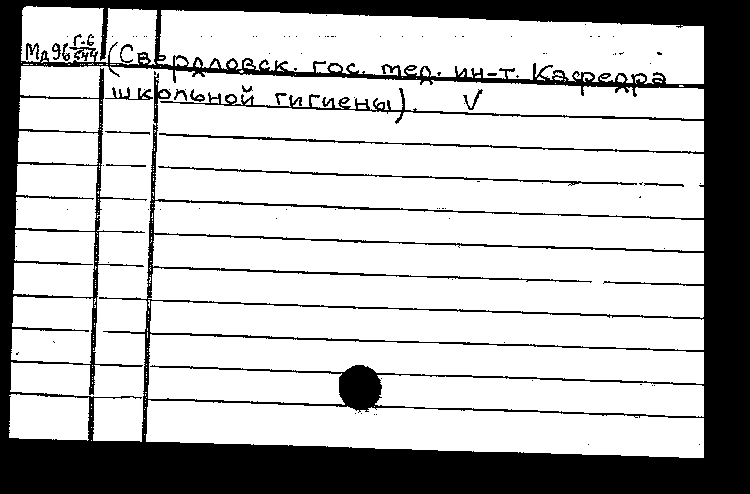 Мд96 Г-6/544 (Свердловск. гос. мед. ин-т. Кафедра
школьной гигиены). V